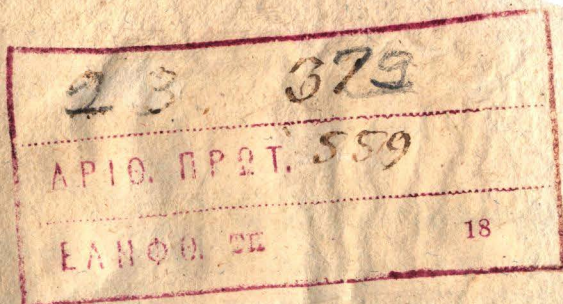 23 379
ΑΡΙΘ. ΠΡΩΤ. 559
ΕΛΗΦΘΗ ΤΗ 18